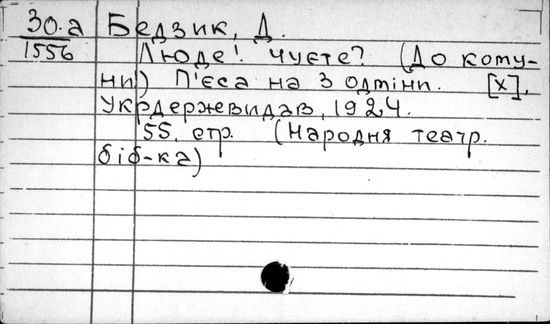 30.а Бедзик, Д.
1556 Люде! Чуєте? (До кому-
ни) П'єса на 3 одміни. [Х],
Укрдержевидав, 1924.
55. стр. (Народня театр.
біб-ка)